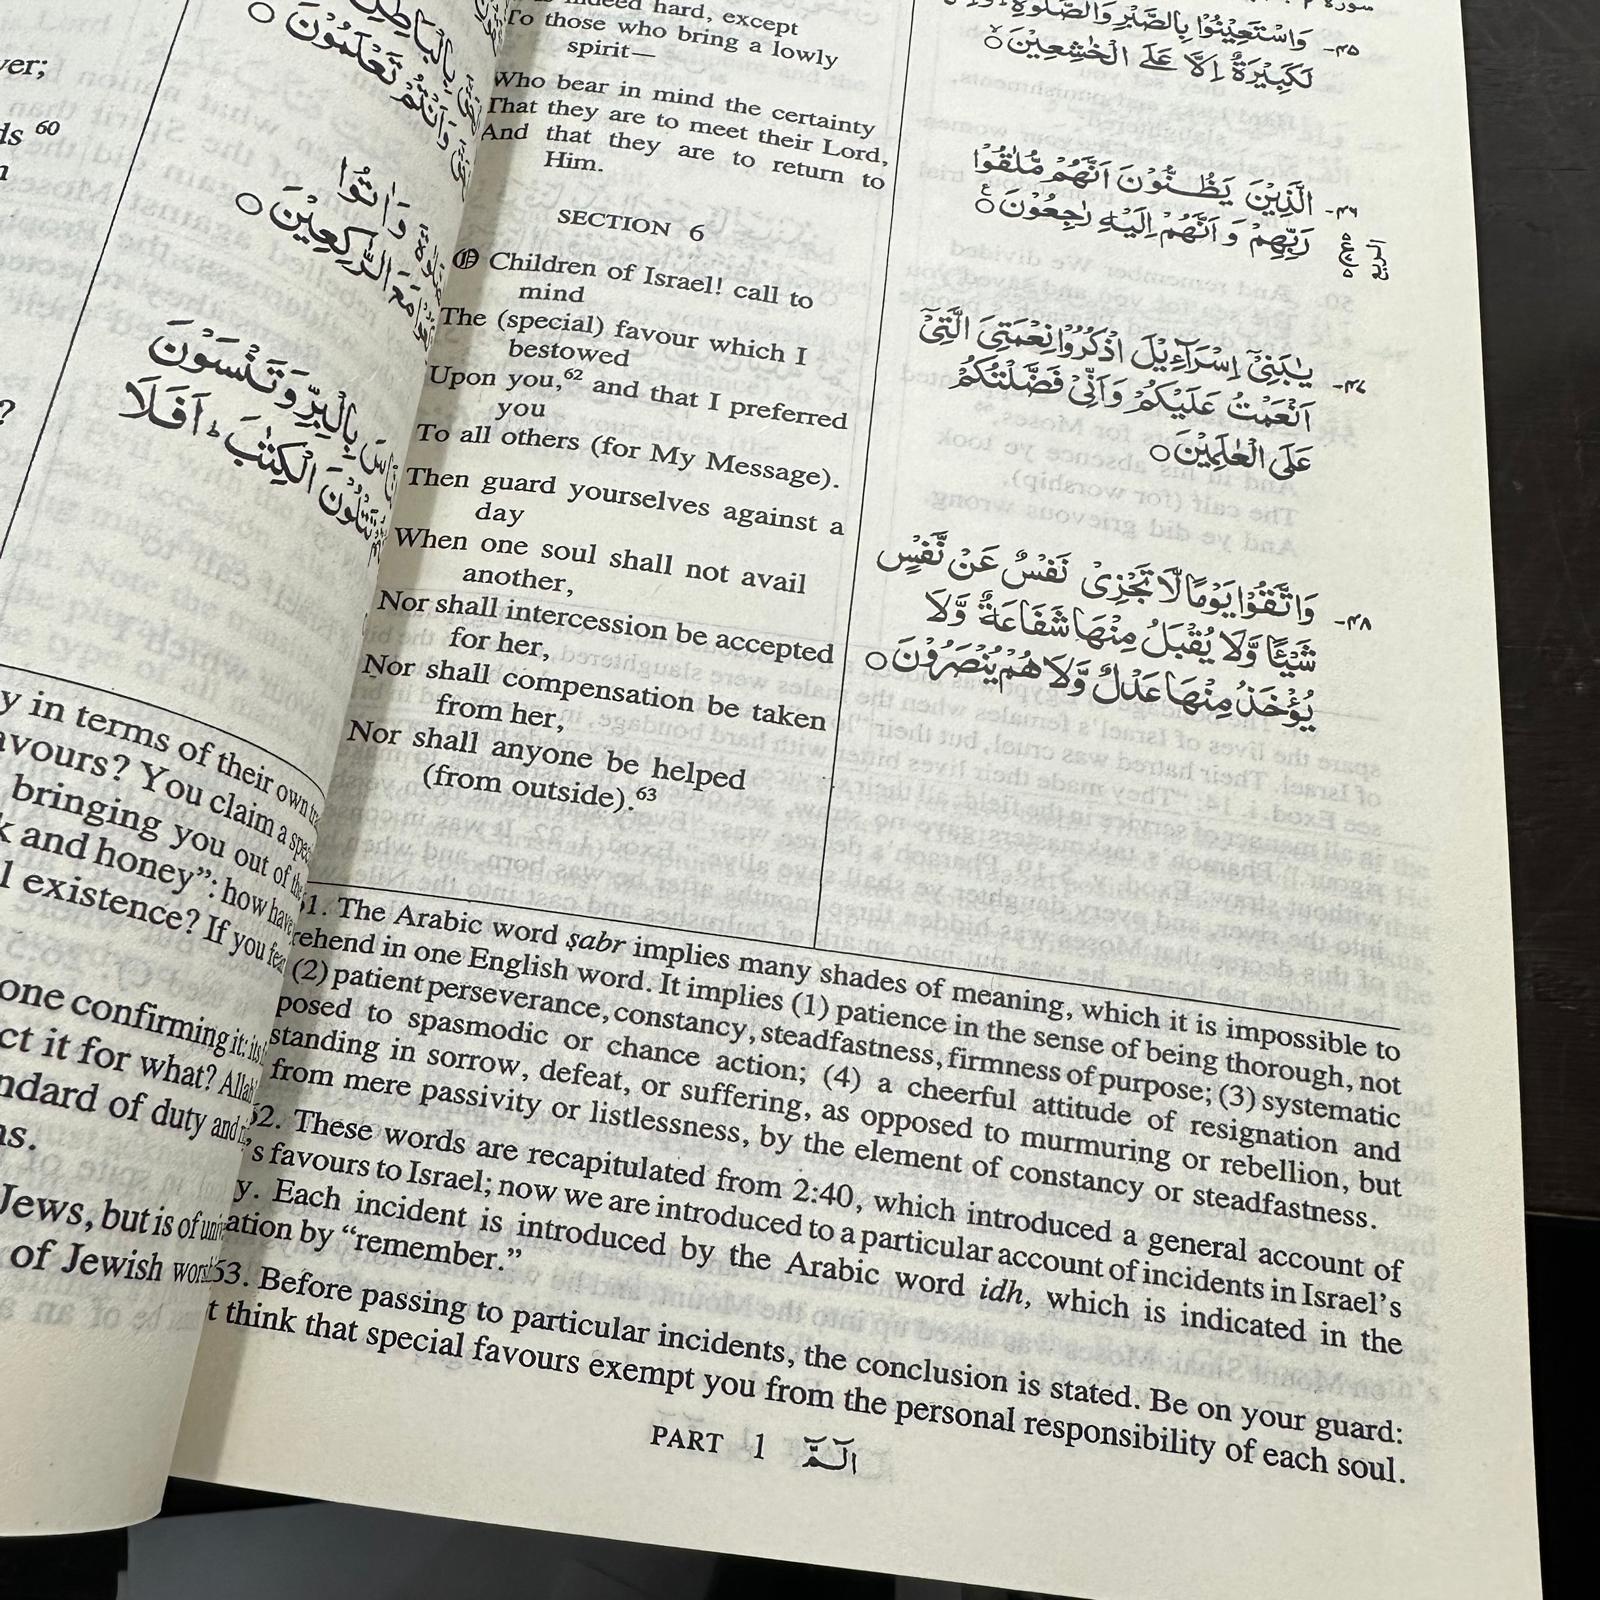 ver;
ds 60
?
بِالْبَاطِلِ
وَاَنْتُمْ تَعْلَمُوْنَ ○
وَاٰتُوا
مَعَ الرّٰكِعِيْنَ ○
بِالْبِرِّ وَتَنْسَوْنَ
تَتْلُوْنَ الْكِتٰبَ ؕ اَفَلَا
y in terms of their own
avours? You claim a
bringing you out of
k and honey": how have
l existence? If you
one confirming it:
ct it for what? Allah
ndard of duty and
ns.
Jews, but is of
of Jewish
indeed hard, except
To those who bring a lowly
spirit—
Who bear in mind the certainty
That they are to meet their Lord,
And that they are to return to
Him.
SECTION 6
O Children of Israel! call to
mind
The (special) favour which I
bestowed
Upon you,62 and that I preferred
you
To all others (for My Message).
Then guard yourselves against a
day
When one soul shall not avail
another,
Nor shall intercession be accepted
for her,
Nor shall compensation be taken
from her,
Nor shall anyone be helped
(from outside).63
۴۵- وَاسْتَعِيْنُوْا بِالصَّبْرِ وَالصَّلٰوةِ ؕ
لَكَبِيْرَةٌ اِلَّا عَلَى الْخٰشِعِيْنَ ○
۴۶- الَّذِيْنَ يَظُنُّوْنَ اَنَّهُمْ مُّلٰقُوْا
رَبِّهِمْ وَاَنَّهُمْ اِلَيْهِ رٰجِعُوْنَ ○
۴۷- يٰبَنِيْۤ اِسْرَآءِيْلَ اذْكُرُوْا نِعْمَتِيَ الَّتِيْۤ
اَنْعَمْتُ عَلَيْكُمْ وَاَنِّيْ فَضَّلْتُكُمْ
عَلَى الْعٰلَمِيْنَ ○
۴۸- وَاتَّقُوْا يَوْمًا لَّا تَجْزِيْ نَفْسٌ عَنْ نَّفْسٍ
شَيْـًٔا وَّلَا يُقْبَلُ مِنْهَا شَفَاعَةٌ وَّلَا
يُؤْخَذُ مِنْهَا عَدْلٌ وَّلَا هُمْ يُنْصَرُوْنَ ○
61. The Arabic word ṣabr implies many shades of meaning, which it is impossible to
rehend in one English word. It implies (1) patience in the sense of being thorough, not
(2) patient perseverance, constancy, steadfastness, firmness of purpose; (3) systematic
posed to spasmodic or chance action; (4) a cheerful attitude of resignation and
standing in sorrow, defeat, or suffering, as opposed to murmuring or rebellion, but
from mere passivity or listlessness, by the element of constancy or steadfastness.
62. These words are recapitulated from 2:40, which introduced a general account of
's favours to Israel; now we are introduced to a particular account of incidents in Israel's
y. Each incident is introduced by the Arabic word idh, which is indicated in the
ation by "remember."
63. Before passing to particular incidents, the conclusion is stated. Be on your guard:
t think that special favours exempt you from the personal responsibility of each soul.
PART 1 الٓمّٓ